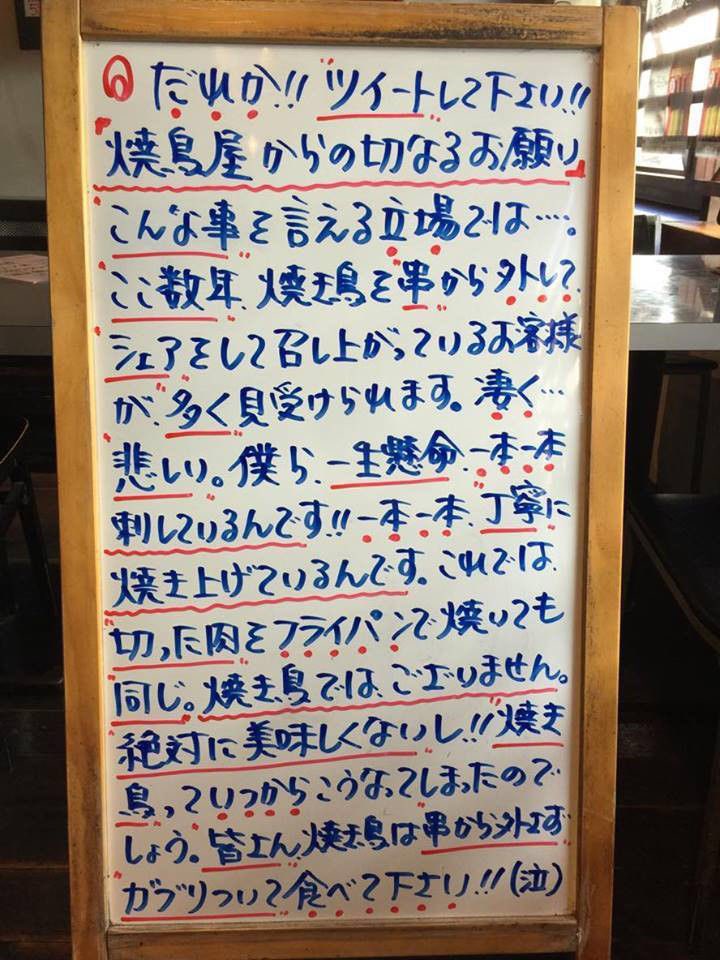 だれか!! ツイートして下さい!!
焼鳥屋からの切なるお願い
こんな事を言える立場では….
ここ数年、焼き鳥を串から外して、
シェアをして召し上がっているお客様
が、多く見受けられます。凄く…
悲しい。僕ら、一生懸命、一本一本
刺しているんです!! 一本一本、丁寧に
焼き上げているんです。これでは、
切った肉をフライパンで焼いても
同じ。焼き鳥では、ございません。
絶対に美味しくないし!! 焼き
鳥っていつからこうなってしまったので
しょう。皆さん、焼き鳥は串から外さず
ガブリついて食べて下さい!!(泣)